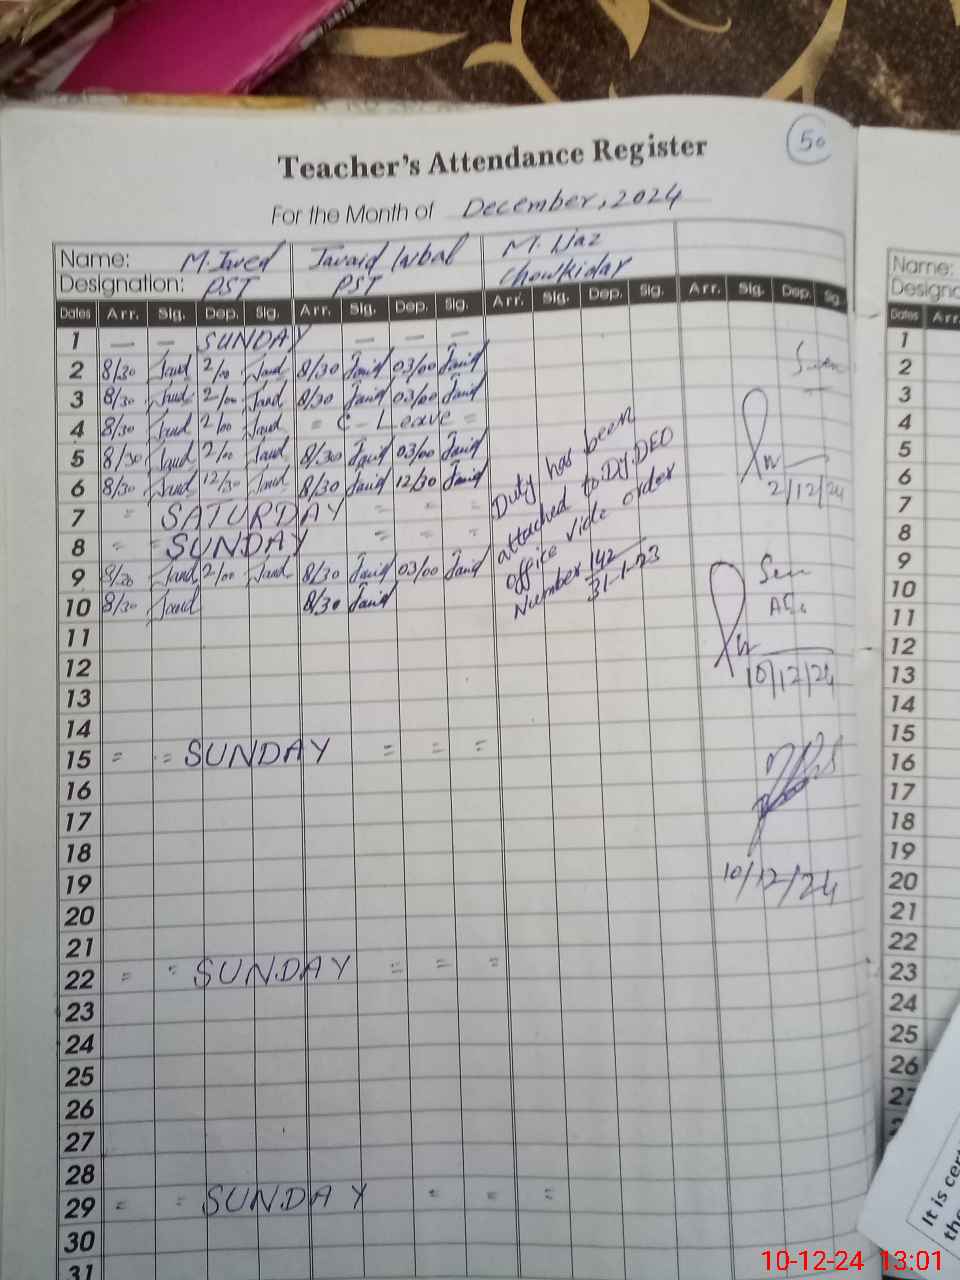 50
Teacher's Attendance Register
For the Month of December, 2024
Name: M. Javed Javaid Iqbal M. Ijaz
Designation: PST PST Chowkidar
Dates Arr. Sig. Dep. Sig. Arr. Sig. Dep. Sig. Arr. Sig. Dep. Sig. Arr. Sig. Dep. Sig.
1 — — SUNDAY — — —
2 8/30 2/00 8/30 03/00
3 8/30 2/00 8/30 03/00
4 8/30 2/00 = C-Leave =
5 8/30 2/00 8/30 03/00
6 8/30 12/30 8/30 12/30
7 = SATURDAY = = =
8 = = SUNDAY = = =
9 8/30 2/00 8/30 03/00
10 8/30 8/30
11
12
13
14
15 = = SUNDAY = = =
16
17
18
19
20
21
22 = = SUNDAY = = =
23
24
25
26
27
28
29 = = SUNDAY = = =
30
31
Duty has been
attached to Dy. DEO
office vide order
Number 142
31-1-23
2/12/24
10/12/24
10/12/24
Name:
Dates Arr.
1
2
3
4
5
6
7
8
9
10
11
12
13
14
15
16
17
18
19
20
21
22
23
24
25
26
27
It is cer
the
10-12-24 13:01